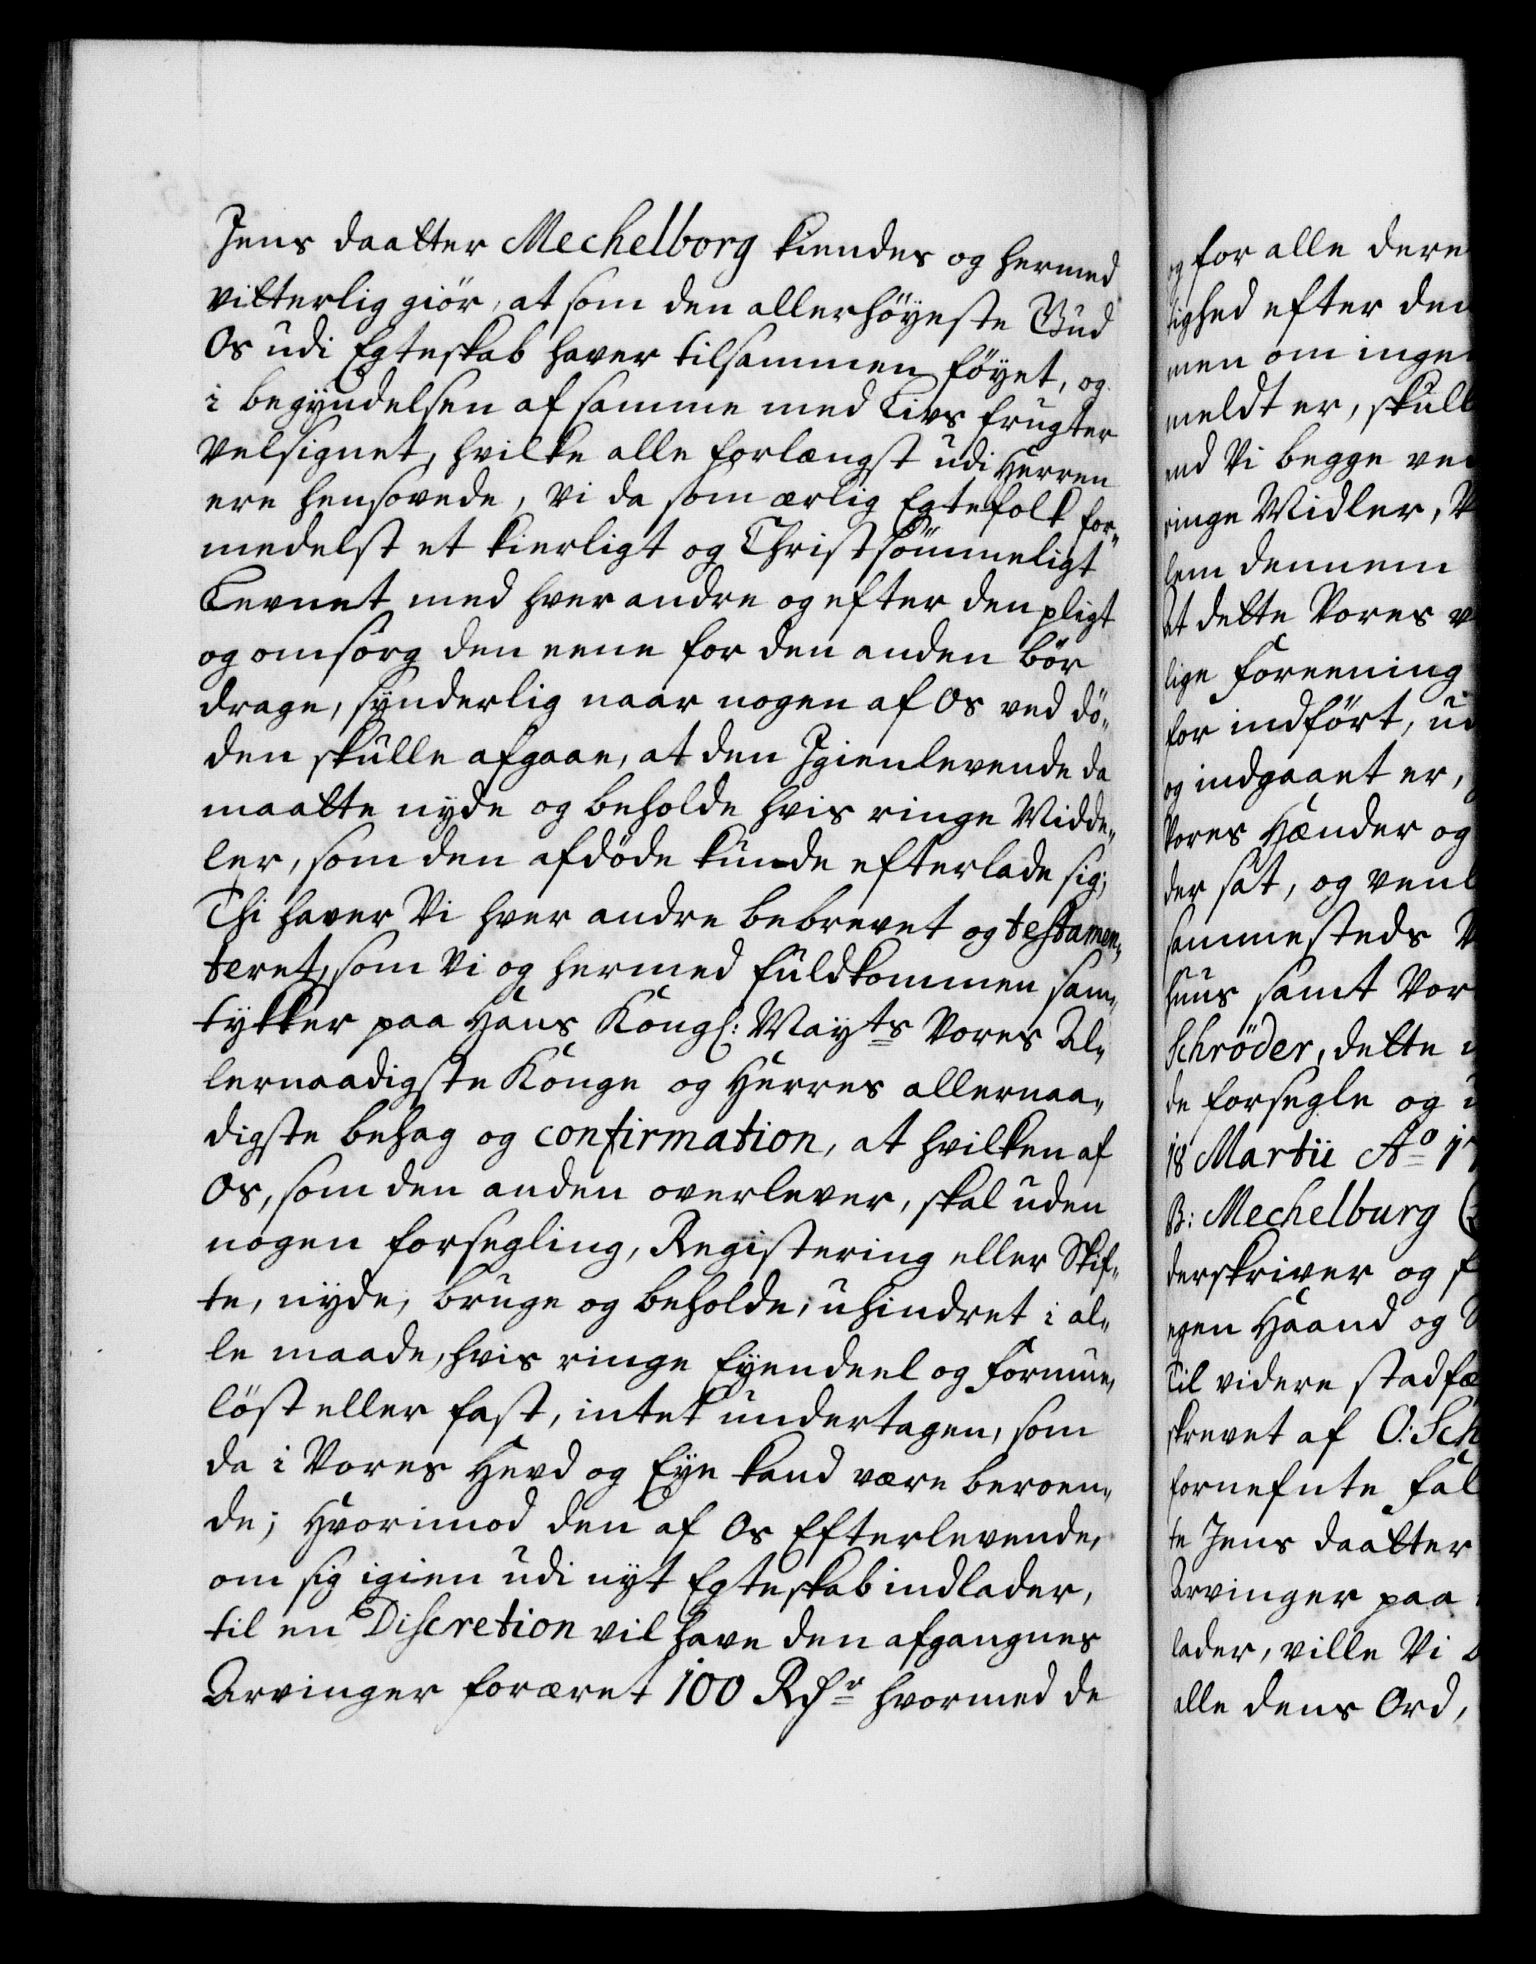 Jens daatter Mechelborg kiendes og hermed
vitterlig giör, at som den allerhöyeste Gud
Os udi Egteskab haver tilsammen föyet, og
i begyndelsen af samme med Livs frugter
velsignet, hvilke alle forlængst udi Herren
ere hensovede, Vi da som ærlig Egtefolk for-
medelst et kierligt og Christsömmeligt
Levnet med hver andre og efter den pligt
og omsorg den eene for den anden bör
drage, synderlig naar nogen af Os ved dö-
den skulle afgaae, at den Igienlevende da
maatte nyde og beholde hvis ringe Midde-
ler, som den afdöde kunde efterlade sig;
Thi haver Vi hver andre bebrevet og testamen-
teret, som Vi og hermed fuldkommen sam-
tykker paa Hans Kongl: Mayts Vores Al-
lernaadigste Konge og Herres allernaa-
digste behag og confirmation, at hvilken af
Os, som den anden overlever, skal uden
nogen forsegling, Registering eller Skif-
te, nyde, bruge og beholde, uhindret i al-
le maade, hvis ringe Eyendeel og formue,
löst eller fast, intet undertagen, som
da i Vores Hevd og Eye kand være beroen-
de; Hvorimod den af Os Efterlevende,
om sig igien udi nyt Egteskab indlader,
til en Discretion vil have den afgangnes
Arvinger foræret 100 Rdr hvormed de
og for alle dere
lighed efter den
men om ingen
meldt er, skull
end Vi begge ved
ringe Midler, V
lem dennem
At dette Vores v
lige foreening
for indfört, ud
og indgaaet er,
Vores Hænder og
der sat, og venl
sammesteds V
huus samt Vor
Schröder, dette
de forsegle og u
18 Martii Ao 17
B: Mechelburg
derskriver og f
egen Haand og
Til videre stadfæ
skrevet af O: Sch
fornefnte Fal
te Jens daatter
Arvinger paa
lader, ville Vi
alle dens Ord,